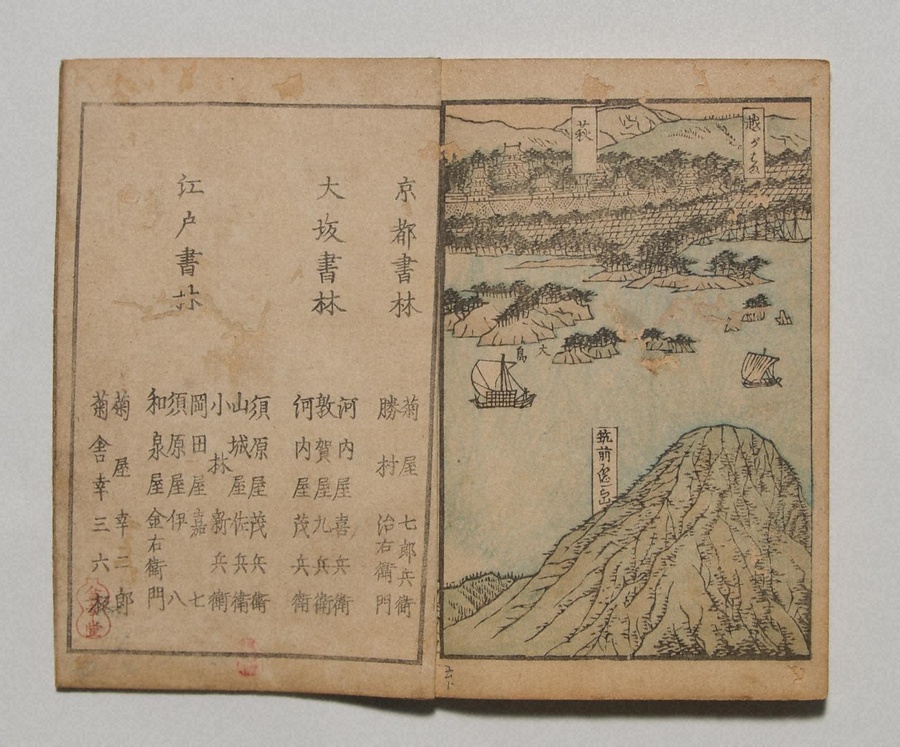 越がはま
萩
大島
筑前
京都書林
菊屋七郎兵衛
勝村治右衛門
大坂書林
河内屋喜兵衛
敦賀屋九兵衛
河内屋茂兵衛
江戸書林
須原屋茂兵衛
山城屋佐兵衛
小林新兵衛
岡田屋嘉七
須原屋伊八
和泉屋金右衛門
菊屋幸二郎
菊舎幸三六